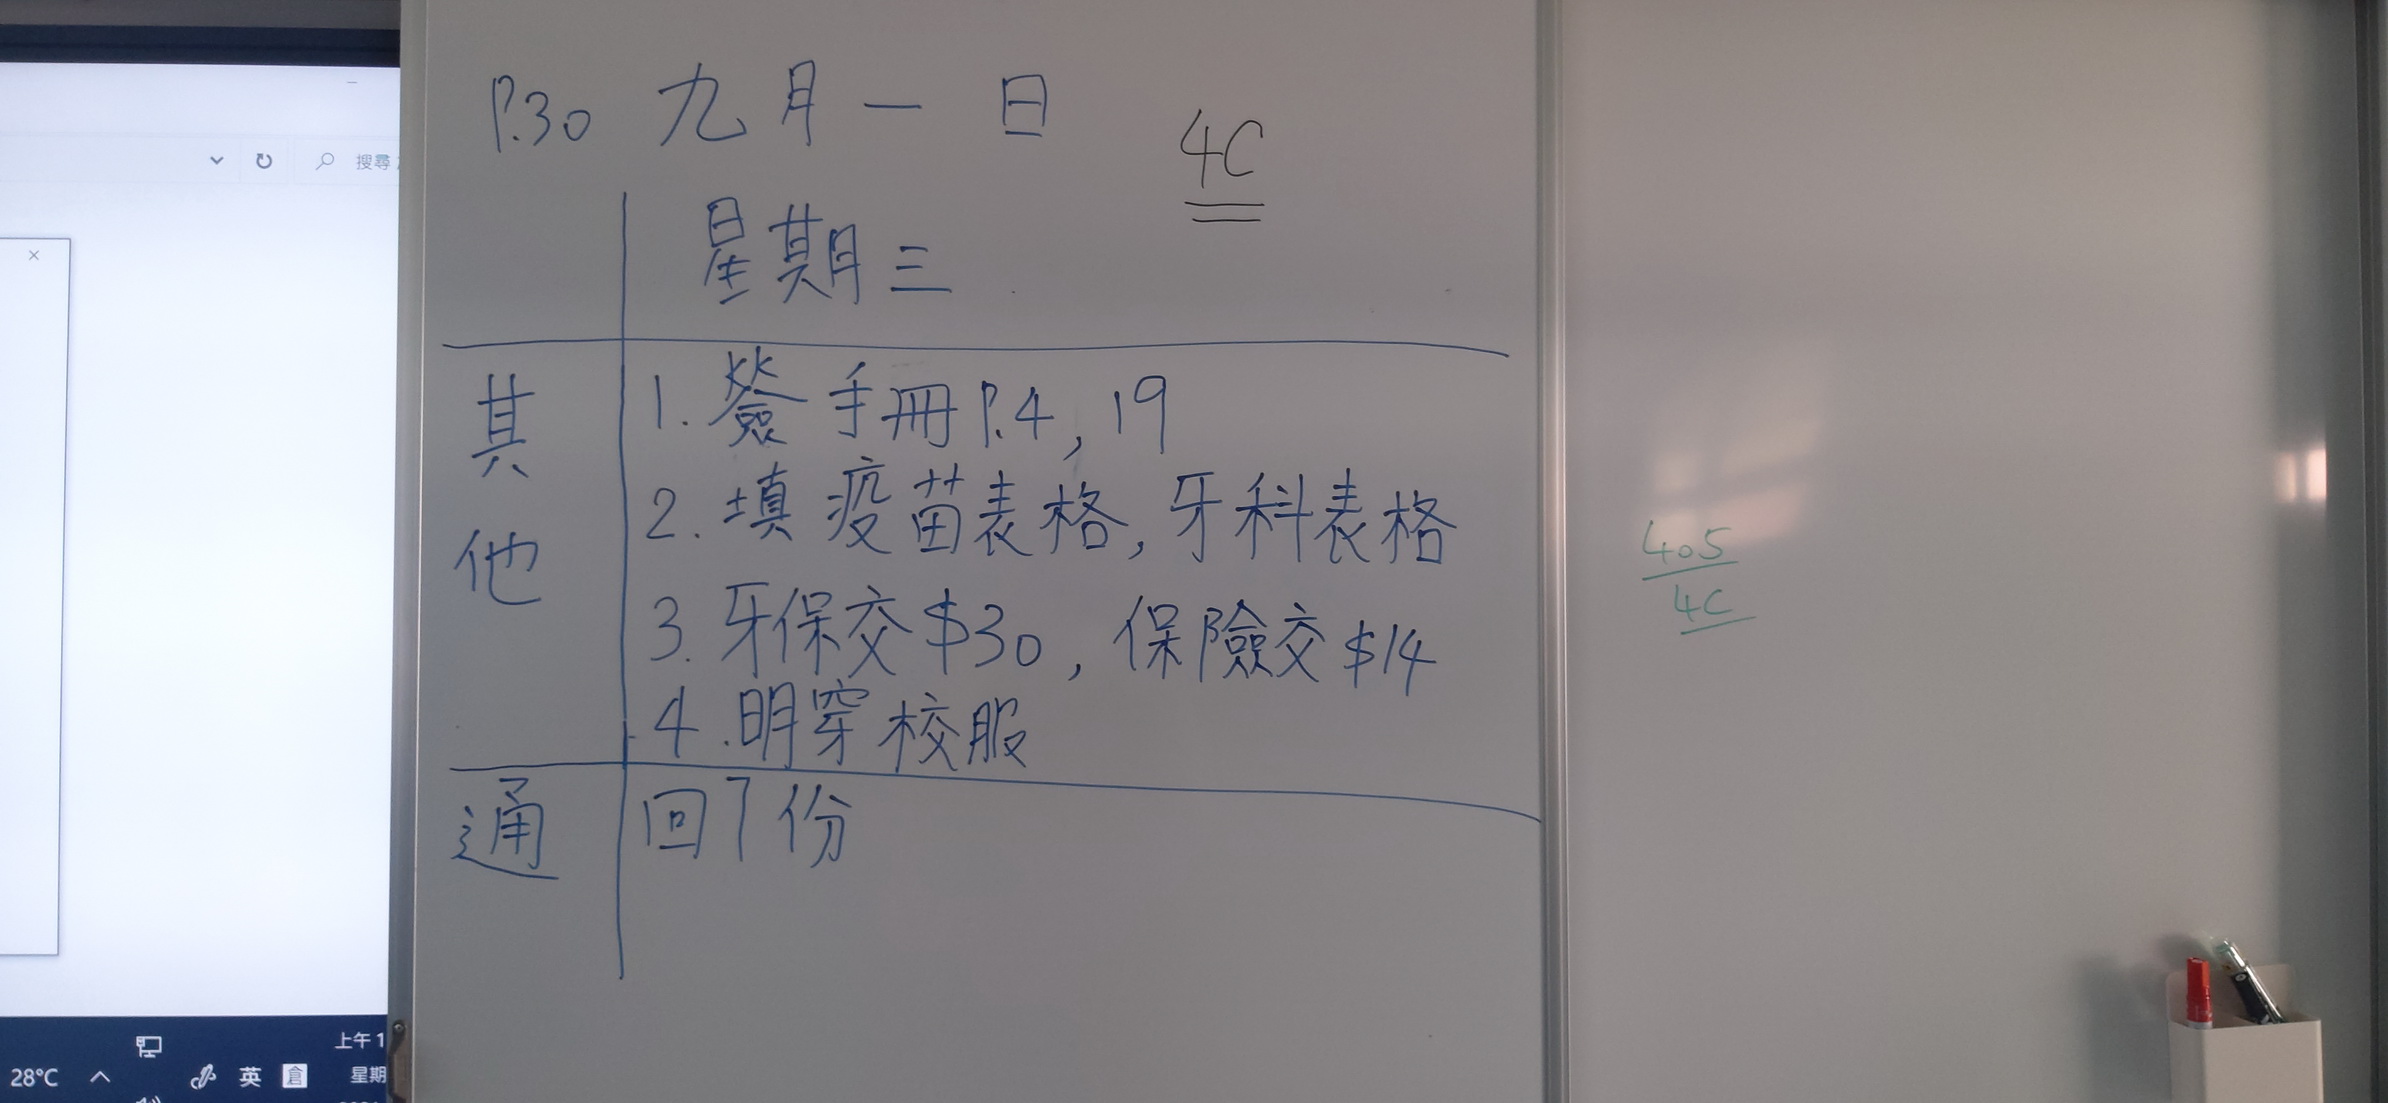 P.30 九月一日
4C
星期三
其他
1. 簽手冊P.4, 19
2. 填疫苗表格, 牙科表格
3. 牙保交$30, 保險交$14
4. 明穿校服
通
回7份
405
4C
搜尋
上午1
28°C
英
倉
星期